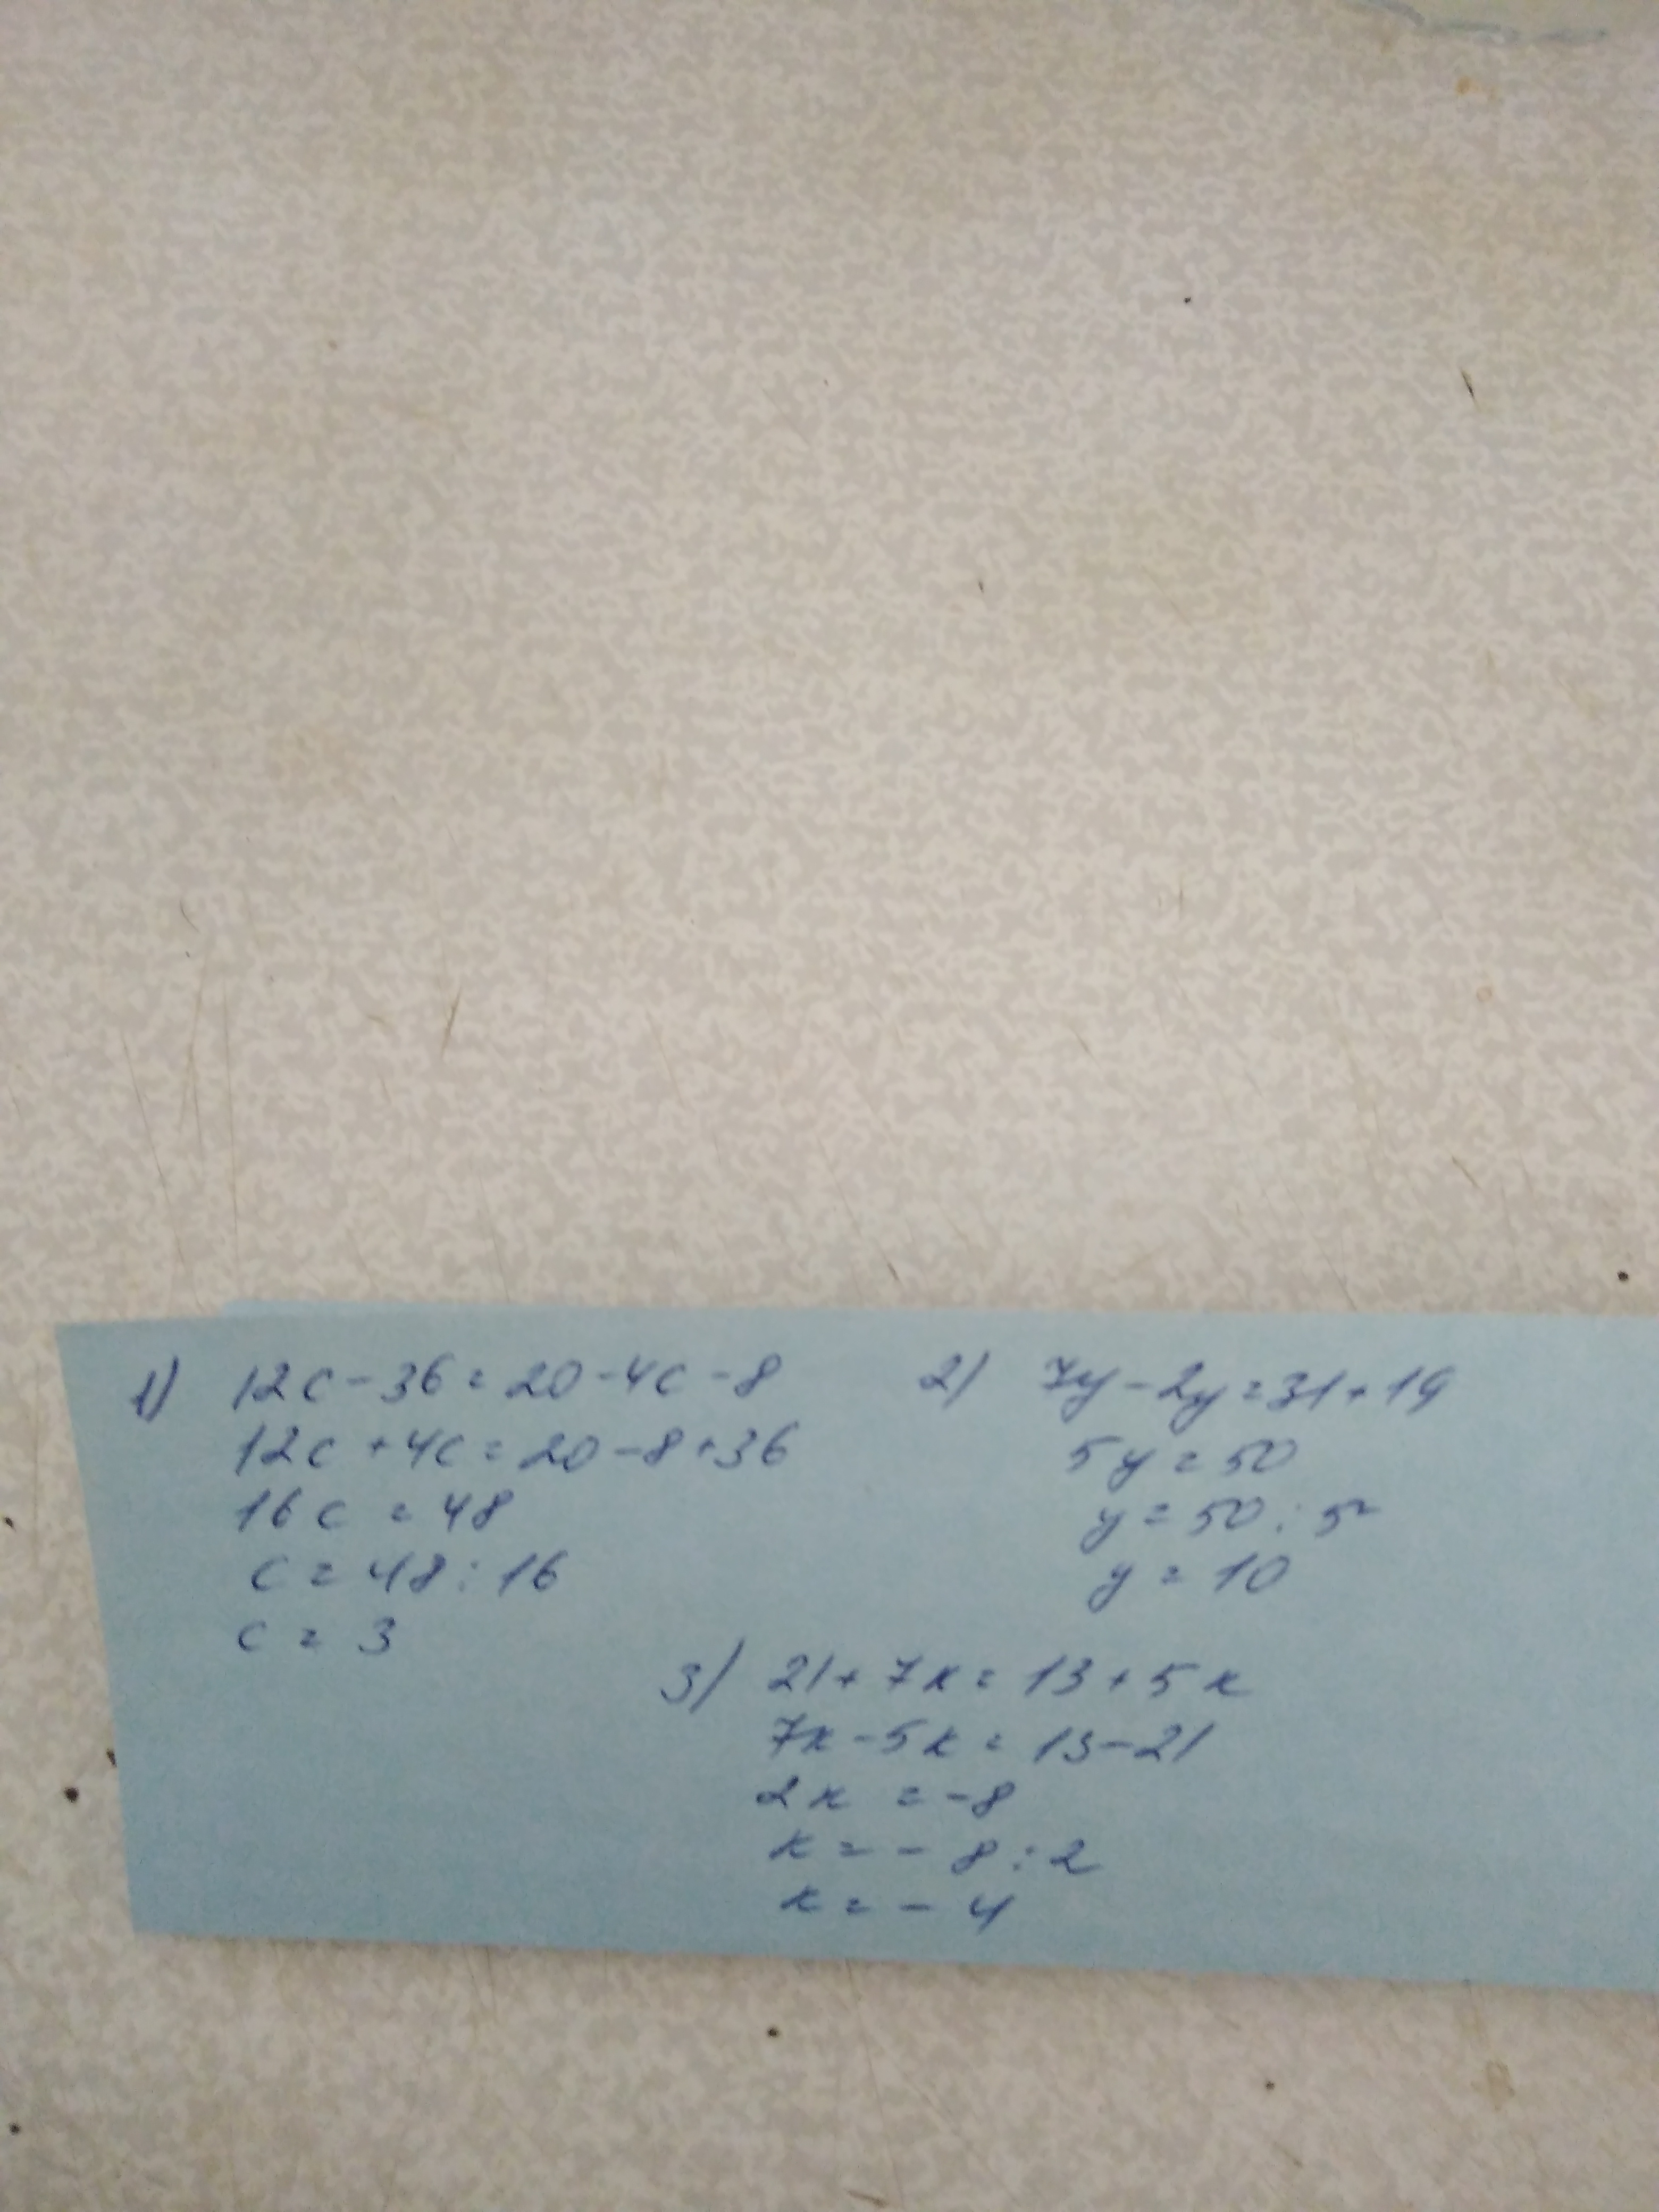 1) 12c-36=20-4c-8
12c+4c=20-8+36
16c=48
c=48:16
c=3
2) 7y-2y=31+19
5y=50
y=50:5
y=10
3) 21+7x=13+5x
7x-5x=13-21
2x=-8
x=-8:2
x=-4